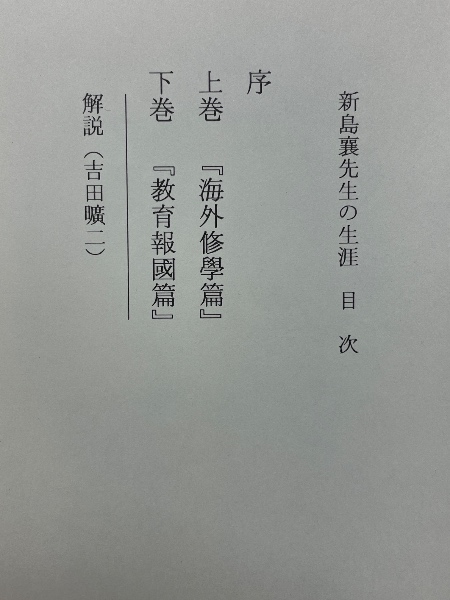 新島襄先生の生涯　目　次
序
上巻　『海外修學篇』
下巻　『教育報國篇』
解説（吉田曠二）